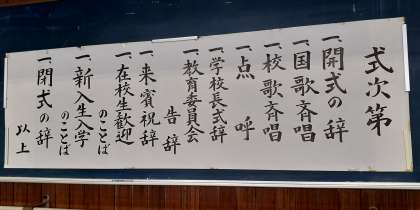 式次第
一、開式の辞
一、国歌斉唱
一、校歌斉唱
一、点呼
一、学校長式辞
一、教育委員会
告辞
一、来賓祝辞
一、在校生歓迎
のことば
一、新入生入学
のことば
一、閉式の辞
以上